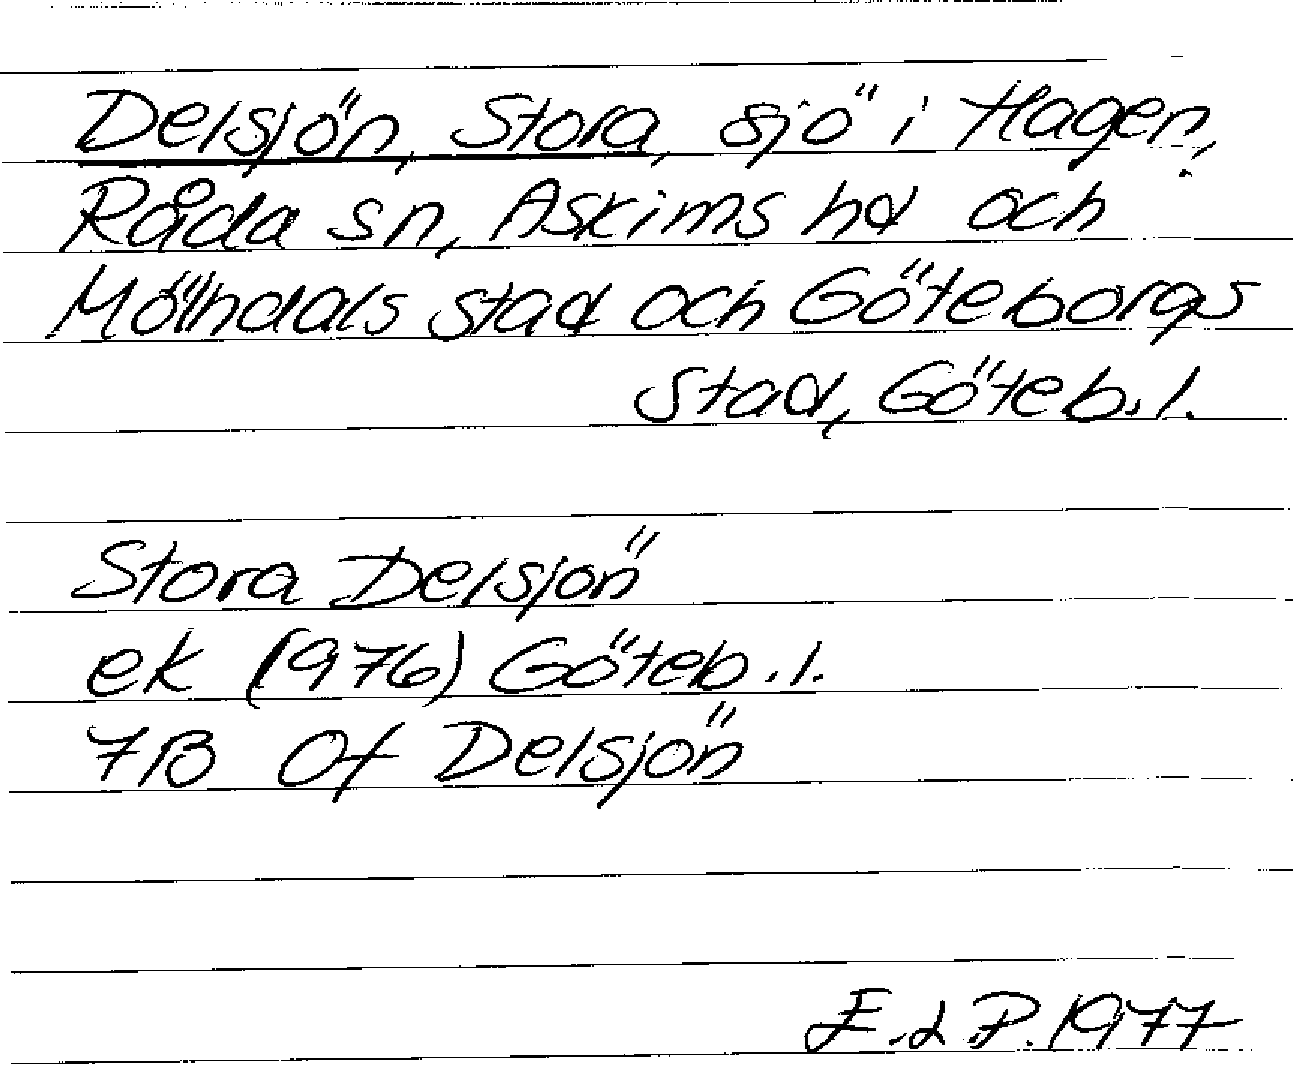 Delsjön, Stora, sjö i Hagen,
Råda sn, Askims hd och
Mölndals stad och Göteborgs
stad, Göteb.l.
Stora Delsjön
ek (1976) Göteb.l.
7B 0f Delsjön
E.d P. 1977